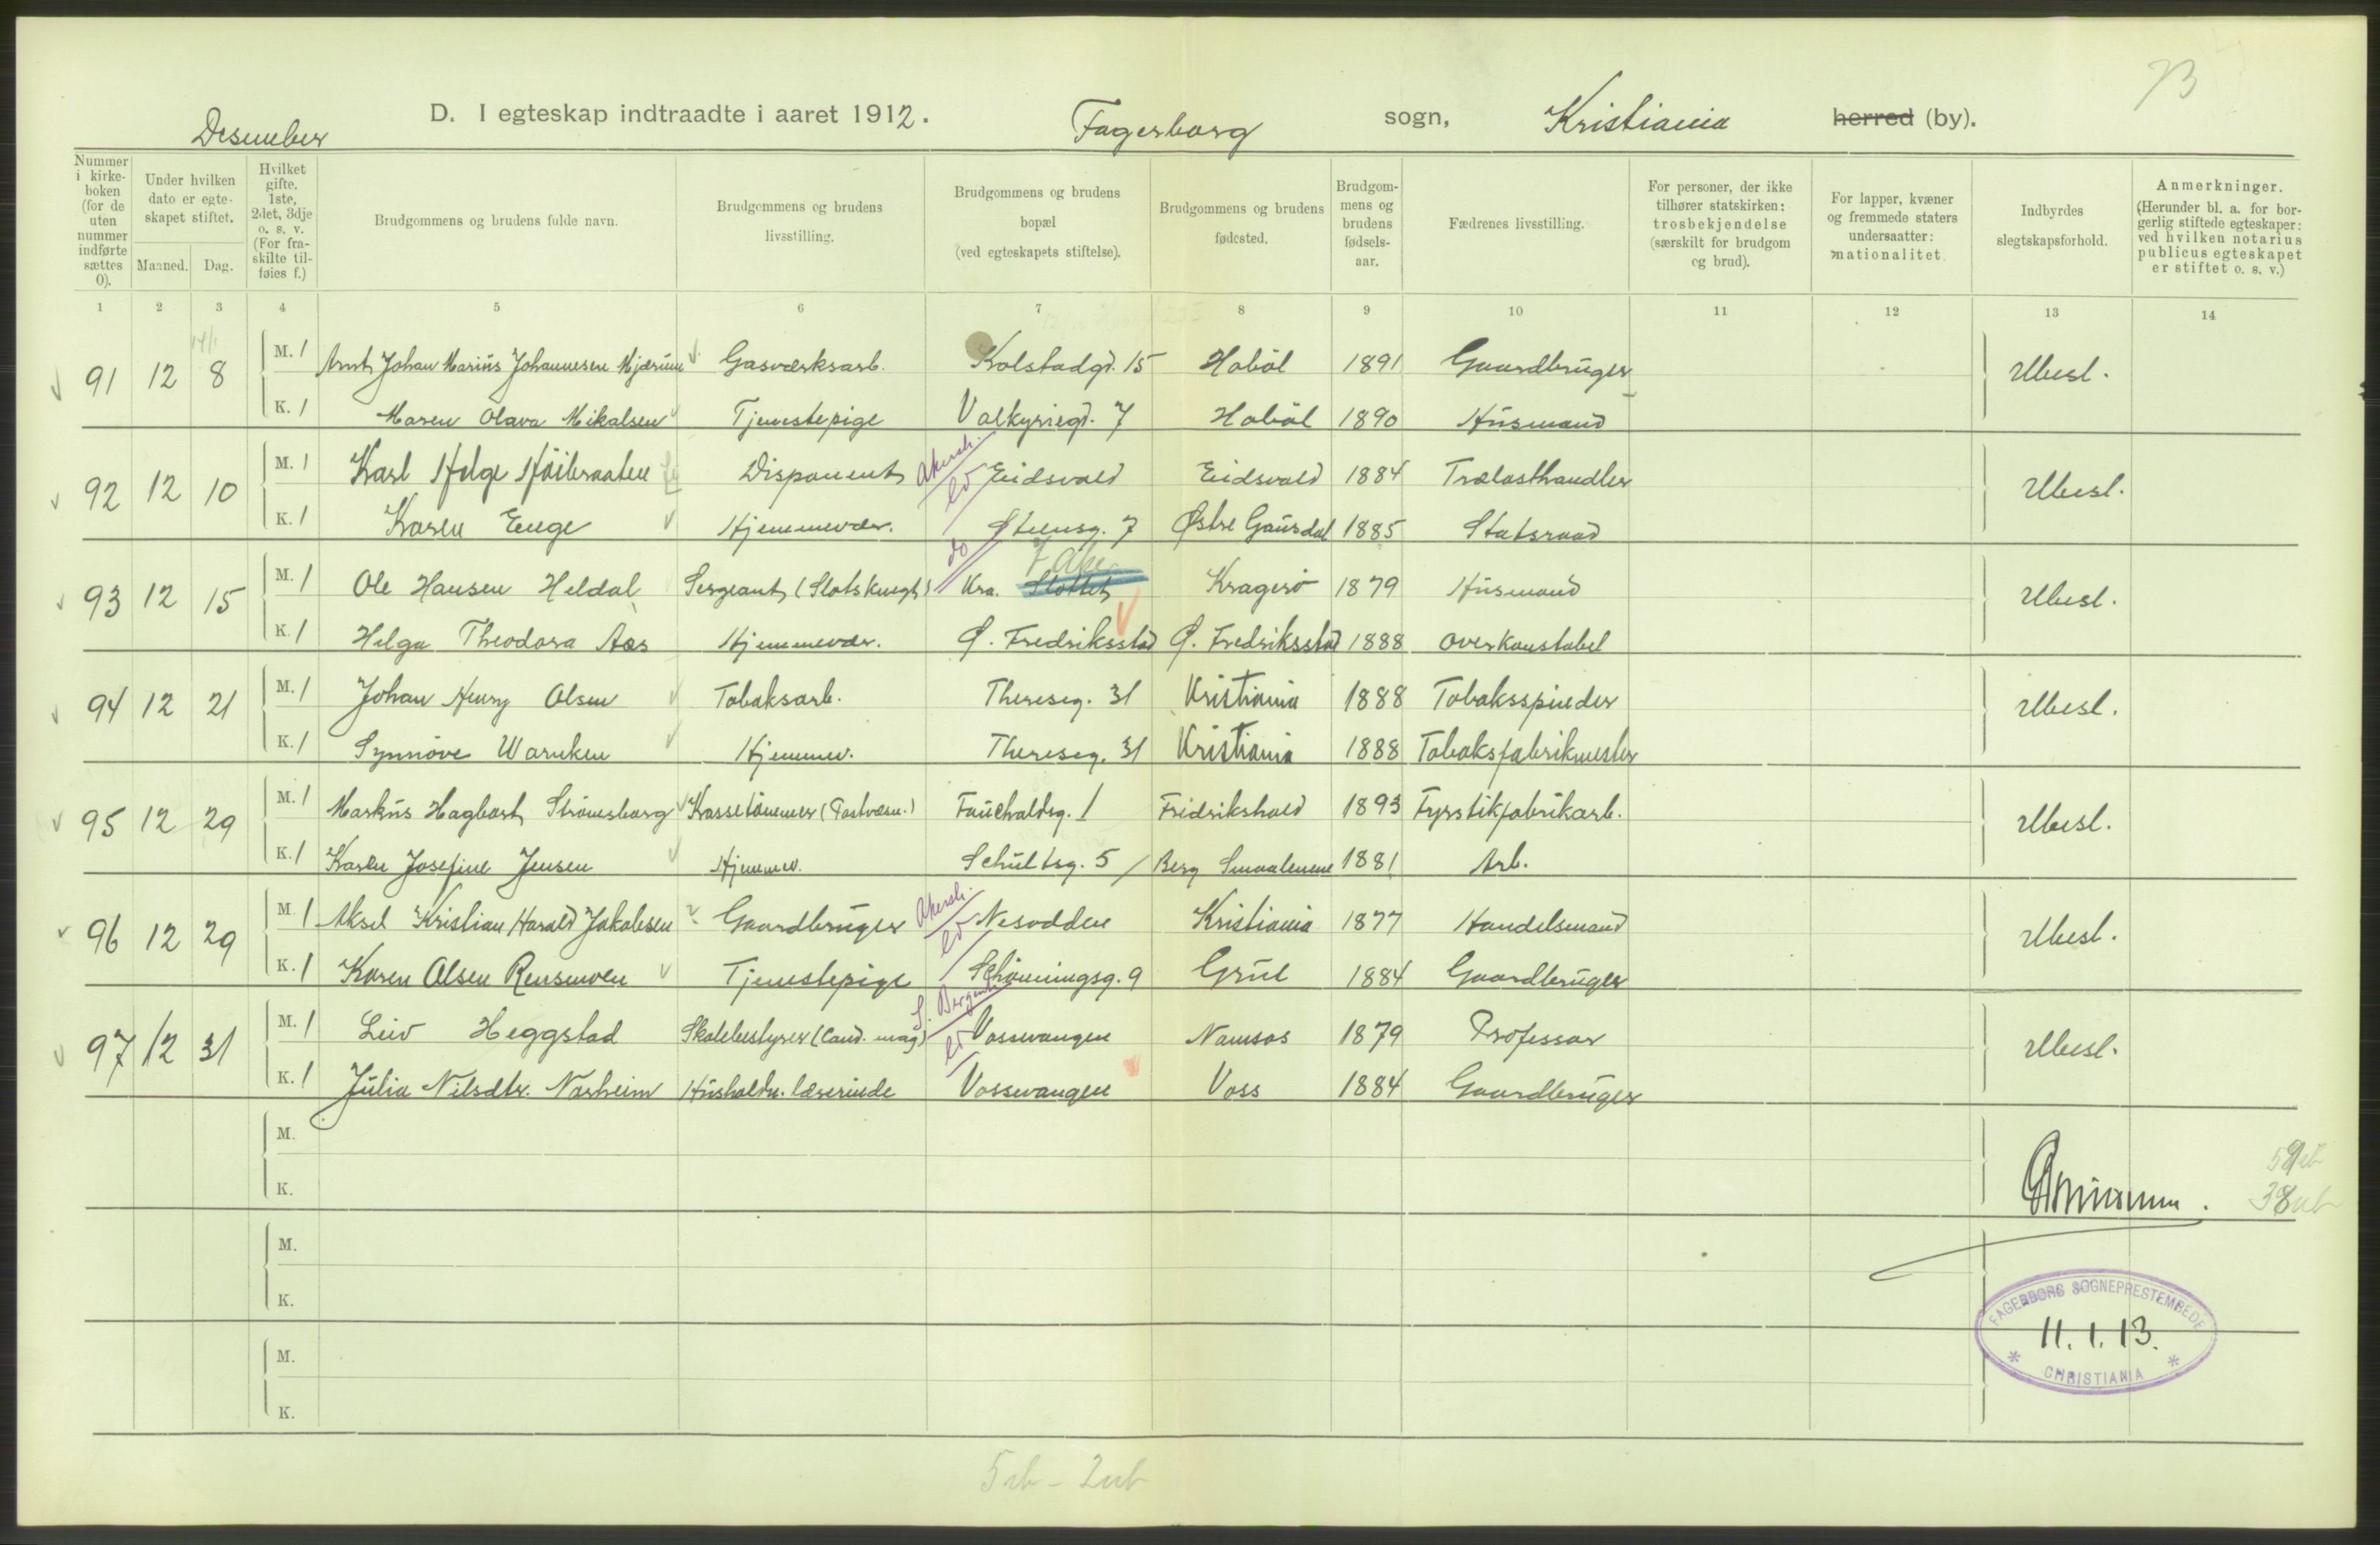 73
Desember D. I egteskap indtraadte i aaret 1912. Fagerborg sogn, Kristiania herred (by).
Nummer i kirke-boken (for de uten nummer indførte sættes 0).
Under hvilken dato er egte-skapet stiftet.
Maaned. Dag.
Hvilket gifte. 1ste, 2det, 3dje o. s. v. (For fra-skilte til-føies f.)
Brudgommens og brudens fulde navn.
Brudgommens og brudens livsstilling.
Brudgommens og brudens bopæl (ved egteskapets stiftelse).
Brudgommens og brudens fødested.
Brudgom-mens og brudens fødsels-aar.
Fædrenes livsstilling.
For personer, der ikke tilhører statskirken: trosbekjendelse (særskilt for brudgom og brud).
For lapper, kvæner og fremmede staters undersaatter: nationalitet
Indbyrdes slegtskapsforhold.
Anmerkninger. (Herunder bl. a. for bor-gerlig stiftede egteskaper: ved hvilken notarius publicus egteskapet er stiftet o. s. v.)
1 2 3 4 5 6 7 8 9 10 11 12 13 14
91 12 8 M. 1 Arnt Johan Marius Johannesen Mjærum Gasværksarb. Kolstadgt. 15 Hobøl 1891 Gaardbruger Ubesl.
K. 1 Maren Olava Mikalsen Tjenestepige Valkyriegt. 7 Hobøl 1890 Husmand
92 12 10 M. 1 Karl Helge Höibraaten Disponent Akersh. Eidsvold Eidsvold 1884 Trælasthandler Ubesl.
K. 1 Karen Enge Hjemmevær. Steensg. 7 Østre Gausdal 1885 Statsraad
93 12 15 M. 1 Ole Hansen Heldal Sergeant (Slotsknegt) do Kra. Slottet Kragerö 1879 Husmand Ubesl.
K. 1 Helga Theodora Aas Hjemmevær. Ø. Fredriksstad Ø. Fredriksstad 1888 Overkonstabel
94 12 21 M. 1 Johan Henry Olsen Tobaksarb. Thereseg. 31 Kristiania 1888 Tobaksspinder Ubesl.
K. 1 Synnöve Warnken Hjemmev. Thereseg. 31 Kristiania 1888 Tobaksfabrikmester
95 12 29 M. 1 Markus Hagbart Strömsborg Kassetömmer (Postvæsn.) Fauchaldsg. 1 Fredrikshald 1893 Fyrstikfabrikarb. Ubesl.
K. 1 Karen Josefine Jensen Hjemmev. Schultsg. 5 Berg Smaalenene 1881 Arb.
96 12 29 M. 1 Aksel Kristian Harald Jakobsen Gaardbruger Akersh. Nesodden Kristiania 1877 Handelsmand Ubesl.
K. 1 Karen Olsen Rensmoen Tjenestepige Schöningsg. 9 Grue 1884 Gaardbruger
97 12 31 M. 1 Leiv Heggstad Skolebestyrer (Cand. mag) S. Bergenh. Vossevangen Namsos 1879 Professor Ubesl.
K. 1 Julia Nilsdtr. Norheim Husholdn. lærerinde Vossevangen Voss 1884 Gaardbruger
M.
K.
M.
K.
M.
K.
FAGERBORG SOGNEPRESTEMBEDE
11. 1. 13.
* CHRISTIANIA *